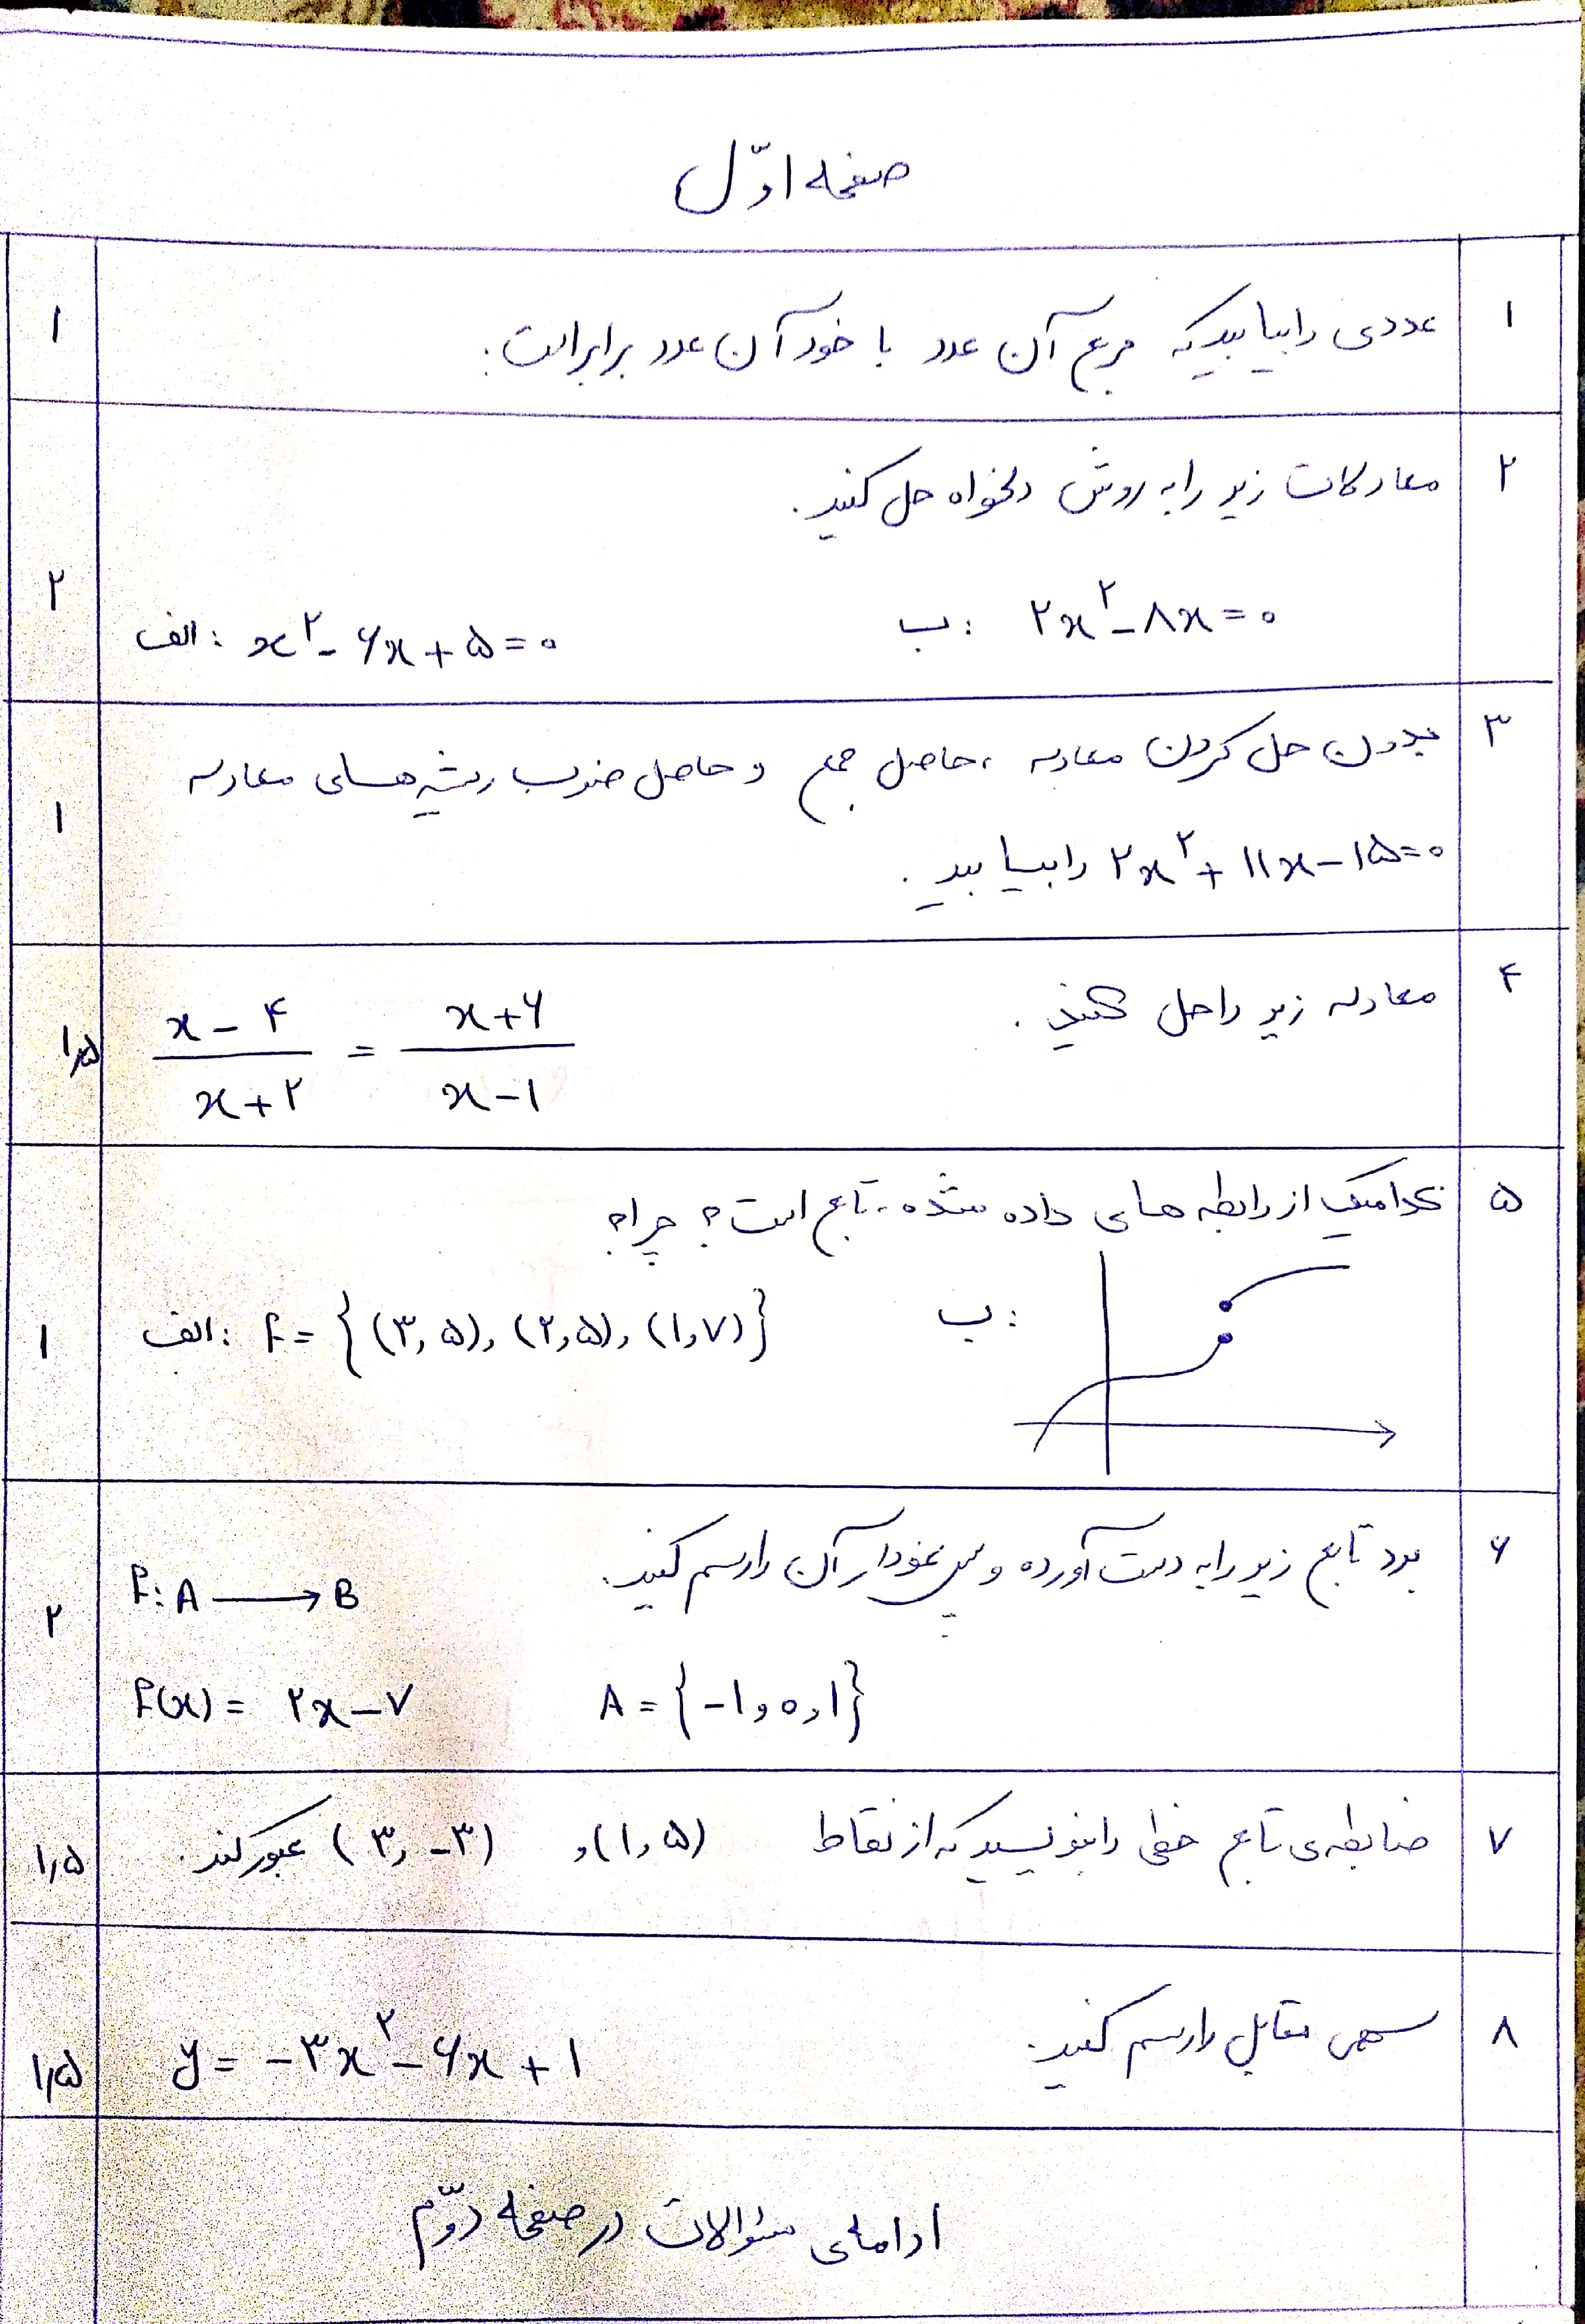 صفحه اوّل
۱ عددی را بیابید که مربع آن عدد با خود آن عدد برابر است: ۱
۲ معادلات زیر را به روش دلخواه حل کنید. ۲
الف: x²-۶x+۵=۰ ب: ۲x²-۸x=۰
۳ بدون حل کردن معادله، حاصل جمع و حاصل ضرب ریشه های معادله ۱
۲x²+۱۱x-۱۵=۰ را بیابید.
۴ معادله زیر را حل کنید. (x-۴)/(x+۲) = (x+۶)/(x-۱) ۱,۵
۵ کدامیک از رابطه های داده شده، تابع است؟ چرا؟ ۱
الف: f={(۳,۵),(۲,۵),(۱,۷)} ب:
۶ برد تابع زیر را به دست آورده و سپس نمودار آن را رسم کنید. ۲
f: A ⟶ B
f(x) = ۲x-۷ A={-۱,۰,۱}
۷ ضابطه ی تابع خطی را بنویسید که از نقاط (۱,۵) و (۳,-۳) عبور کند. ۱,۵
۸ سهمی مقابل را رسم کنید. y=-۳x²-۶x+۱ ۱,۵
ادامه ی سئوالات در صفحه دوّم